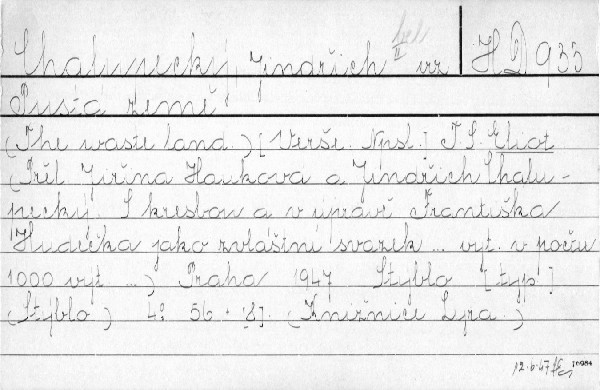 Chalupecký, Jindřich vrz HD 935
II
Pustá země
(The waste land.) [Verše. Npsl.] T. S. Eliot
(Přel. Jiřina Hauková a Jindřich Chalu-
pecký. S kresbou a v úpravě Františka
Hudečka jako zvláštní svazek ... vyt. v počtu
1000 výt. ...) Praha 1947 Stýblo [typ.]
(Stýblo.) 4° 56 + [8]. (Knižnice Lyra.)
12.6.47 10984